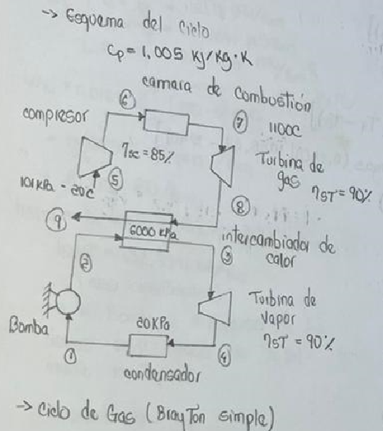 → Esquema del ciclo
Cp = 1,005 kJ/kg·K
camara de combustión
compresor
⑥
⑦
1100C
ηsc = 85%
Turbina de
gas
ηST = 90%
101 KPa - 20C
⑤
⑧
⑨
6000 KPa
intercambiador de
calor
②
③
Bomba
20 KPa
Turbina de
vapor
ηST = 90%
①
④
condensador
→ Ciclo de Gas (BrayTon simple)